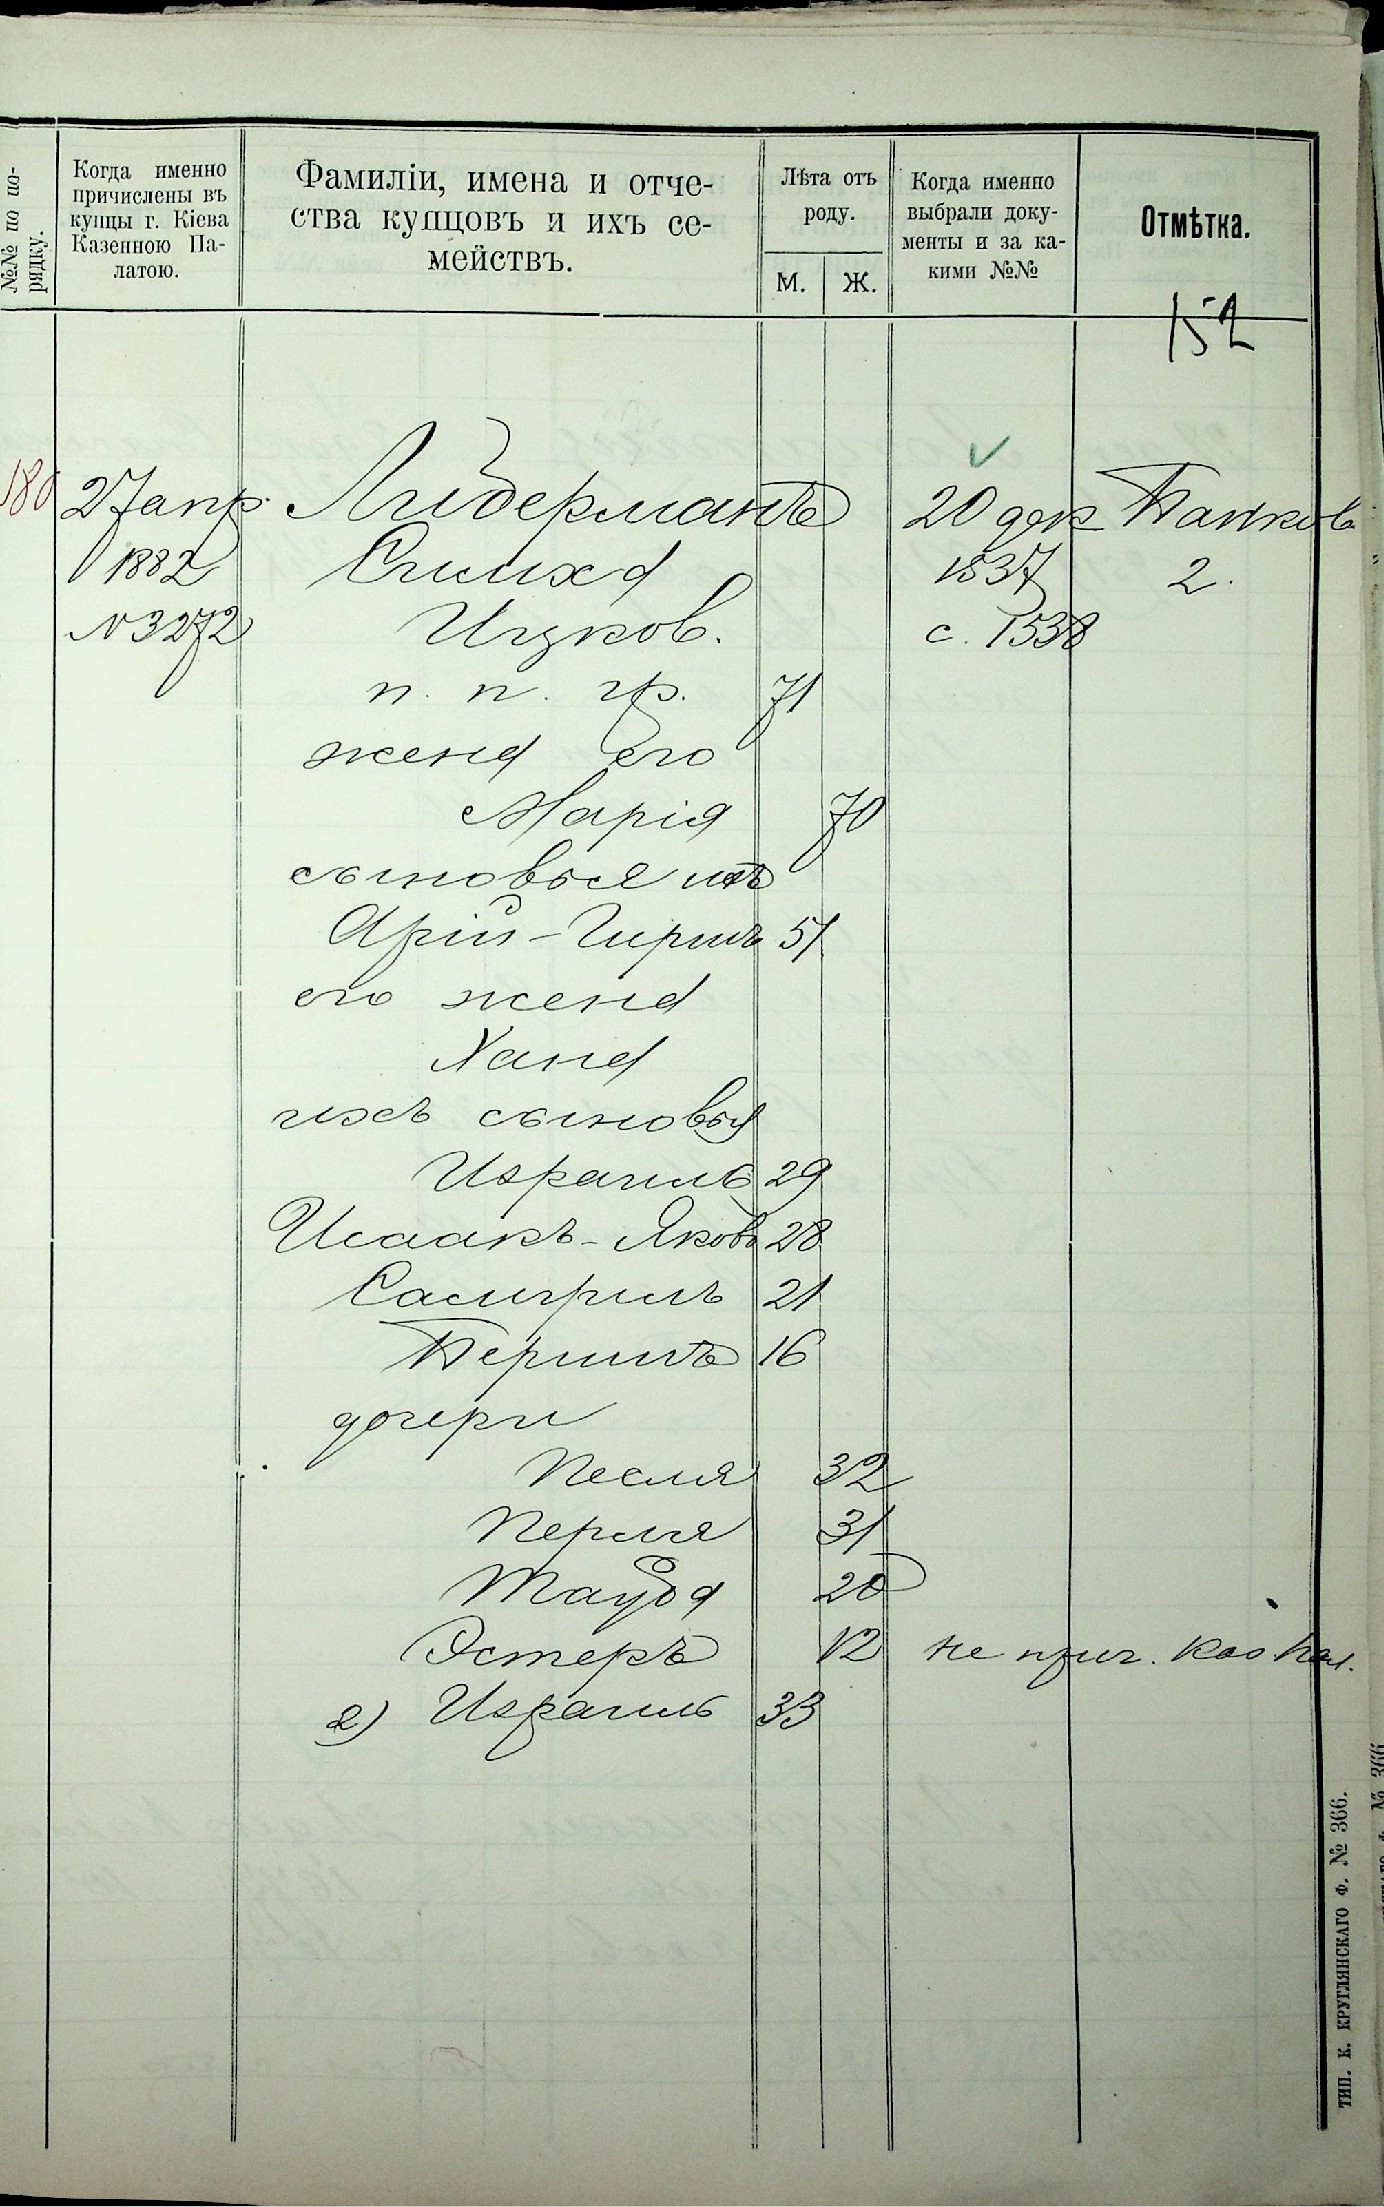 №№ по по-
рядку.
Когда именно
причислены въ
купцы г. Кіева
Казенною Па-
латою.
Фамиліи, имена и отче-
ства купцовъ и ихъ се-
мействъ.
Лѣта отъ
роду.
М.
Ж.
Когда именно
выбрали доку-
менты и за ка-
кими №№
Отмѣтка.
152
180 27 апр. Либерманъ 20 дек
1882 Симха 1537 2.
№ 3272 Ицков. с. 1538
п. п. гр. 71
жена его
Марія 70
сыновья ихъ
Арій-Гиршъ 51
его жена
Хана
ихъ сыновья
Израиль 29
Исаакъ-Яковъ 28
Самуилъ 21
Бершъ 16
дочери
Песля 32
Перля 31
Тауба 20
Эстеръ 12 не прич. Каз Пал.
2) Израиль 33
ТИП. К. КРУГЛЯНСКАГО Ф. № 366.